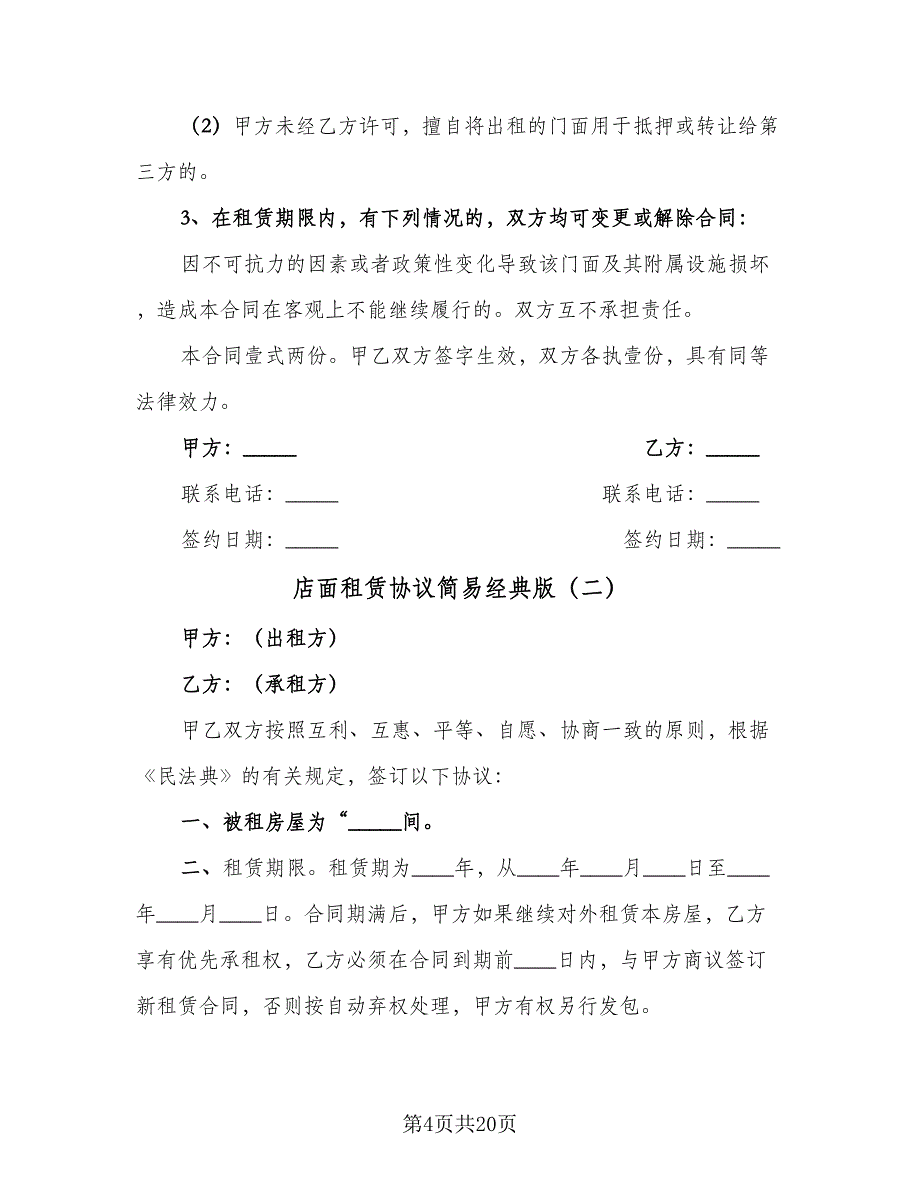 （2）甲方未经乙方许可，擅自将出租的门面用于抵押或转让给第
三方的。
3、在租赁期限内，有下列情况的，双方均可变更或解除合同：
因不可抗力的因素或者政策性变化导致该门面及其附属设施损坏
，造成本合同在客观上不能继续履行的。双方互不承担责任。
本合同壹式两份。甲乙双方签字生效，双方各执壹份，具有同等
法律效力。
甲方：_____ 乙方：_____
联系电话：_____ 联系电话：_____
签约日期：_____ 签约日期：_____
店面租赁协议简易经典版（二）
甲方：（出租方）
乙方：（承租方）
甲乙双方按照互利、互惠、平等、自愿、协商一致的原则，根据
《民法典》的有关规定，签订以下协议：
一、被租房屋为“_____间。
二、租赁期限。租赁期为____年，从____年____月____日至____
年____月____日。合同期满后，甲方如果继续对外租赁本房屋，乙方
享有优先承租权，乙方必须在合同到期前____日内，与甲方商议签订
新租赁合同，否则按自动弃权处理，甲方有权另行发包。
第4页共20页